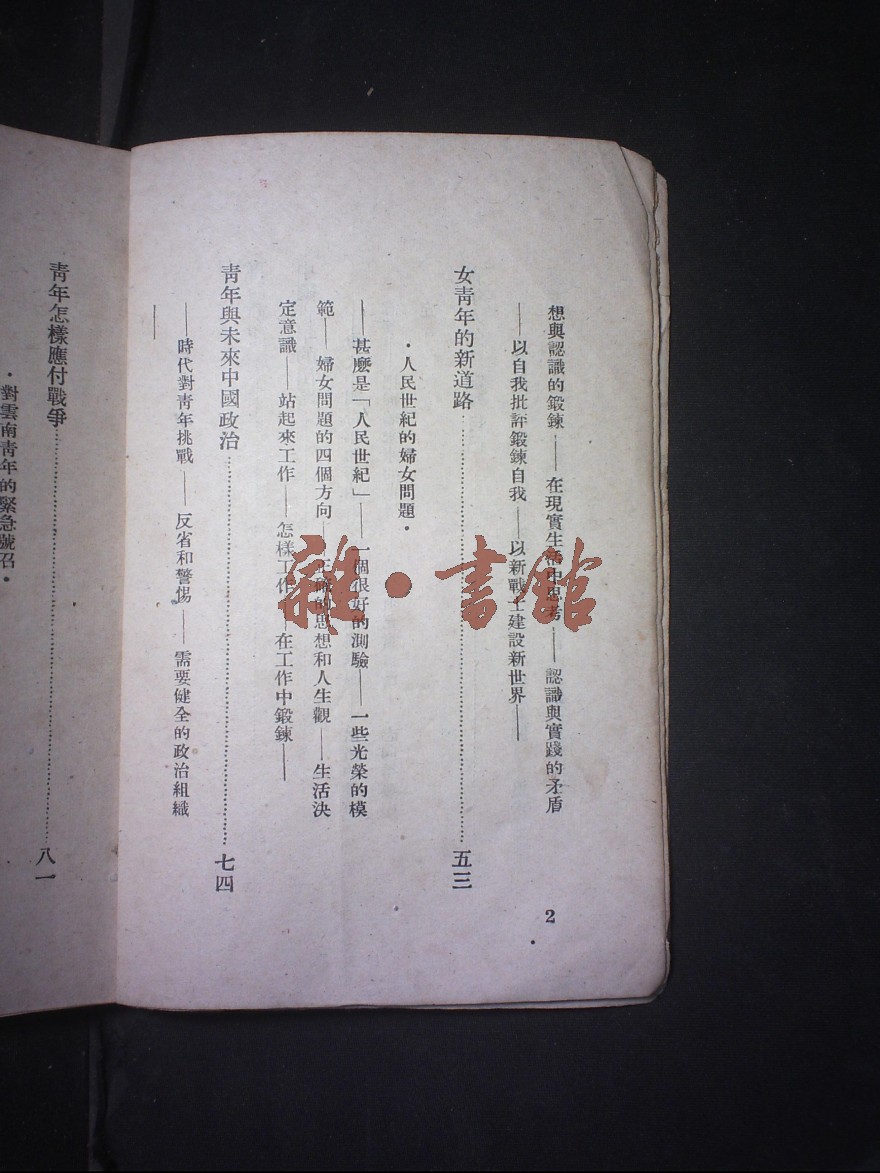 想與認識的鍛鍊——在現實生活中思考——認識與實踐的矛盾
——以自我批評鍛鍊自我——以新戰士建設新世界——
女靑年的新道路……五三
•人民世紀的婦女問題•
——甚麽是「人民世紀」——一個很好的測驗——一些光榮的模
範——婦女問題的四個方向——正確的思想和人生觀——生活決
定意識——站起來工作——怎樣工作——在工作中鍛鍊——
靑年與未來中國政治……七四
——時代對靑年挑戰——反省和警惕——需要健全的政治組織
——
2
靑年怎樣應付戰爭……八一
•對雲南靑年的緊急號召•
雜•書館